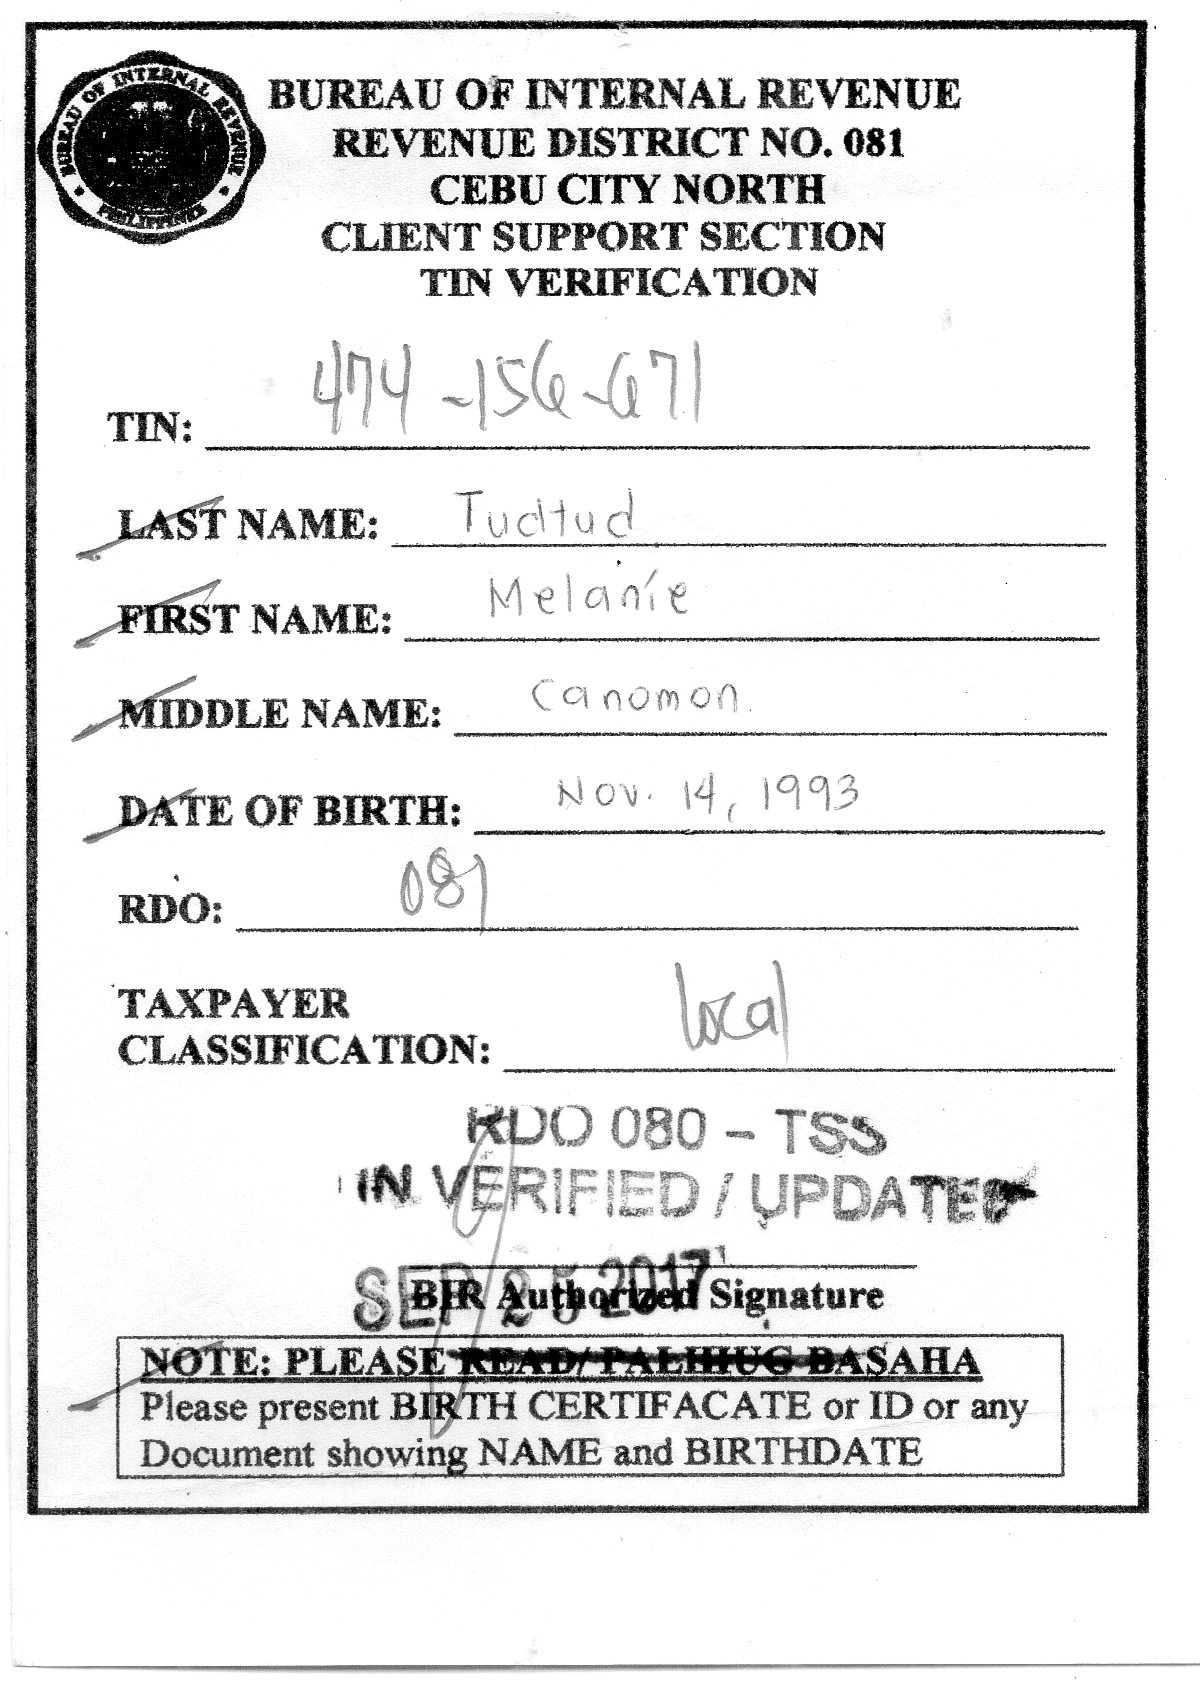 BUREAU OF INTERNAL REVENUE
PHILIPPINES
BUREAU OF INTERNAL REVENUE
REVENUE DISTRICT NO. 081
CEBU CITY NORTH
CLIENT SUPPORT SECTION
TIN VERIFICATION
TIN: 474-156-671
LAST NAME: Tudtud
FIRST NAME: Melanie
MIDDLE NAME: Canomon
DATE OF BIRTH: Nov. 14, 1993
RDO: 081
TAXPAYER
CLASSIFICATION: local
RDO 080 - TSS
IN VERIFIED / UPDATED
SEP 25 2017
BIR Authorized Signature
NOTE: PLEASE READ/ PALIHUG BASAHA
Please present BIRTH CERTIFACATE or ID or any
Document showing NAME and BIRTHDATE